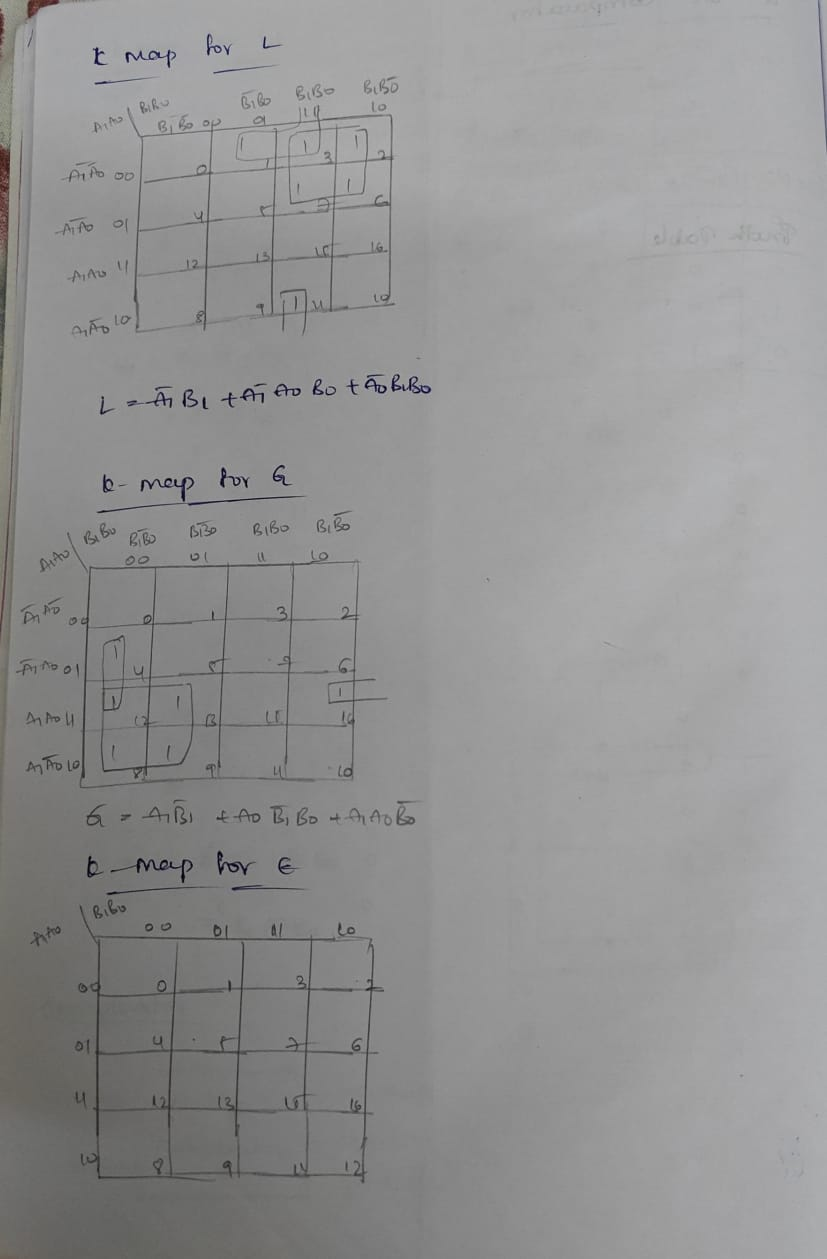 K map for L
A₁A₀ \ B₁B₀
B̄₁B̄₀ 00 B̄₁B₀ 01 B₁B₀ 11 B₁B̄₀ 10
Ā₁Ā₀ 00 0 1 1 1 3 1 2
Ā₁A₀ 01 4 5 1 7 1 6
A₁A₀ 11 12 13 15 16
A₁Ā₀ 10 8 9 1 11 10
L = Ā₁B₁ + Ā₁A₀B₀ + Ā₀B₁B₀
K- map for G
A₁A₀ \ B₁B₀ B̄₁B̄₀ B̄₁B₀ B₁B₀ B₁B̄₀
00 01 11 10
Ā₁Ā₀ 00 0 1 3 2
Ā₁A₀ 01 1 4 5 7 6
A₁A₀ 11 1 12 1 13 15 1 16
A₁Ā₀ 10 1 8 1 9 11 10
G = A₁B̄₁ + A₀B̄₁B₀ + A₁A₀B̄₀
K- map for E
A₁A₀ \ B₁B₀ 00 01 11 10
00 0 1 3 2
01 4 5 7 6
11 12 13 15 16
10 8 9 11 12